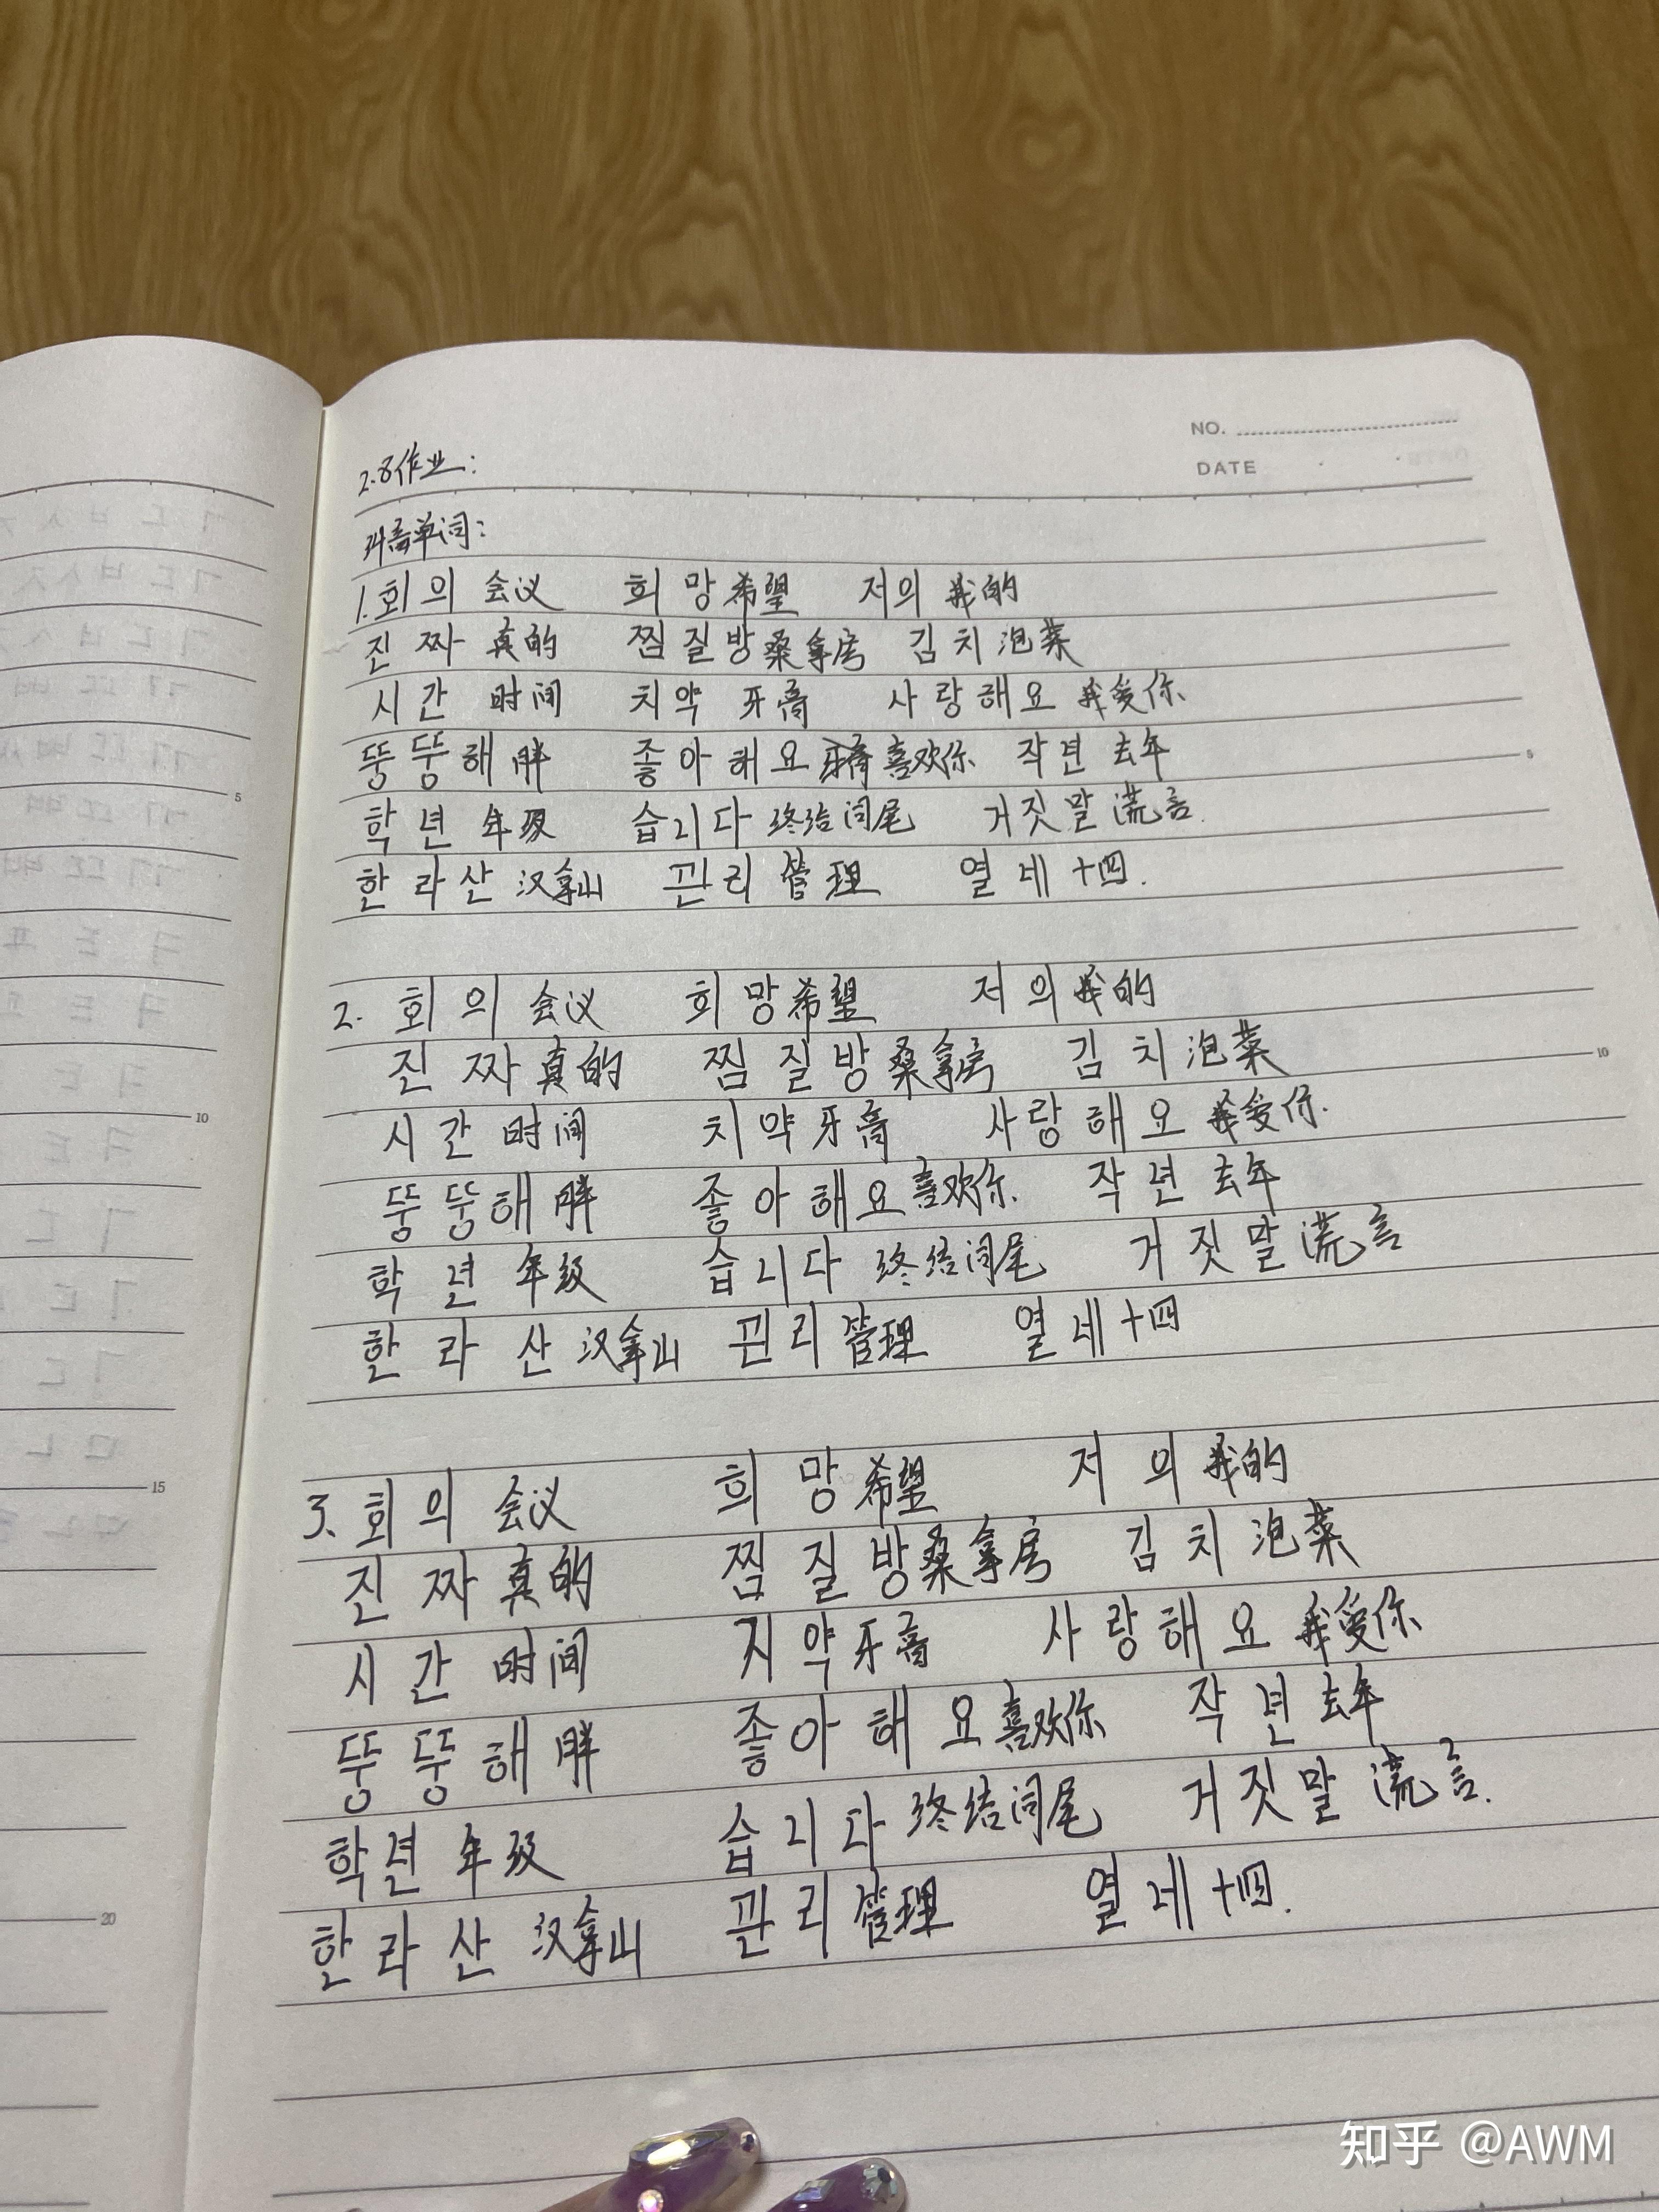 NO.
DATE
2.8作业:
抄写单词:
1.회의 会议 희망 希望 저의 我的
진짜 真的 찜질방 桑拿房 김치 泡菜
시간 时间 치약 牙膏 사랑해요 我爱你
뚱뚱해 胖 좋아해요 喜欢你 작년 去年
학년 年级 습니다 终结词尾 거짓말 谎言.
한라산 汉拿山 관리 管理 열네 十四.
2. 회의 会议 희망 希望 저의 我的
진짜 真的 찜질방 桑拿房 김치 泡菜
시간 时间 치약 牙膏 사랑해요 我爱你.
뚱뚱해 胖 좋아해요 喜欢你. 작년 去年
학년 年级 습니다 终结词尾 거짓말 谎言
한라산 汉拿山 관리 管理 열네 十四
3、회의 会议 희망 希望 저의 我的
진짜 真的 찜질방 桑拿房 김치 泡菜
시간 时间 지약 牙膏 사랑해요 我爱你
뚱뚱해 胖 좋아해요 喜欢你 작년 去年
학년 年级 습니다 终结词尾 거짓말 谎言.
한라산 汉拿山 관리 管理 열네 十四.
5
10
15
20
5
10
知乎 @AWM